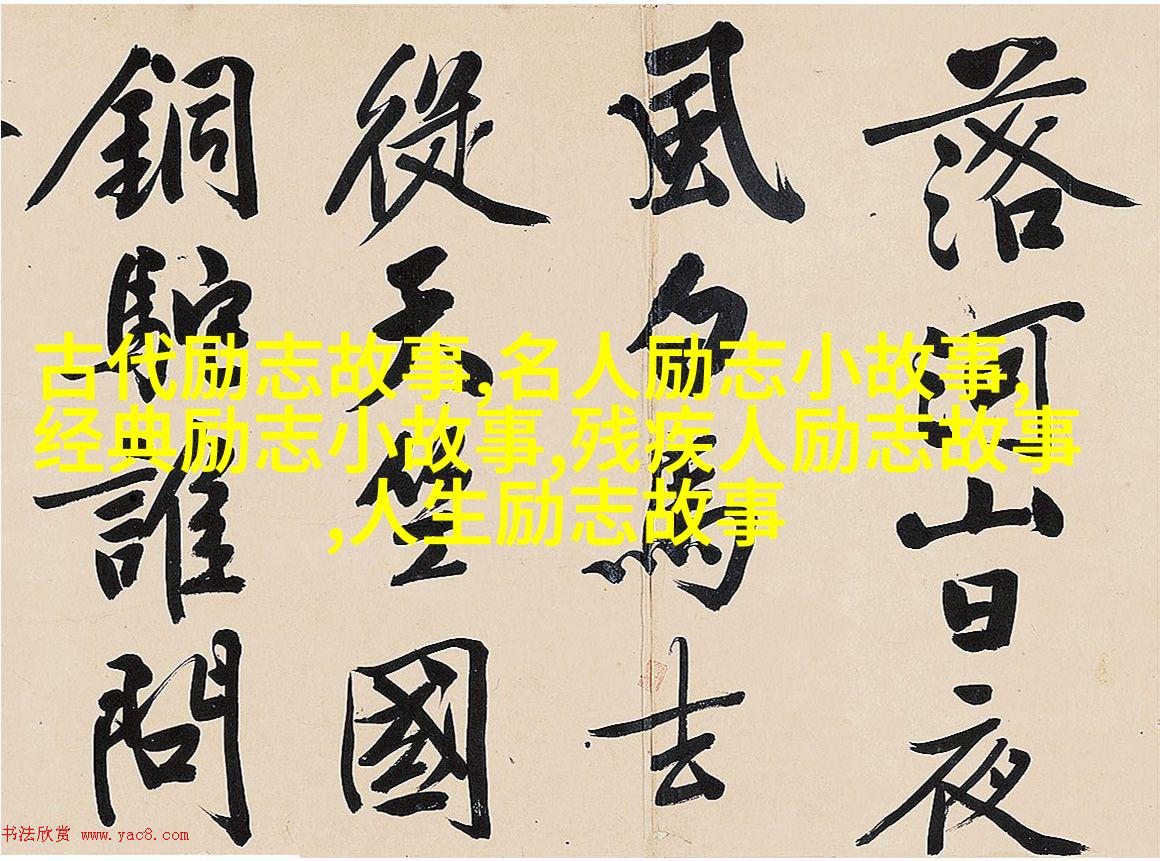 落河山日夜
風馬去
從天國
銅駝誰問
古代励志故事,名人励志小故事,
经典励志小故事,残疾人励志故事
,人生励志故事
书法欣赏 www.yac8.com